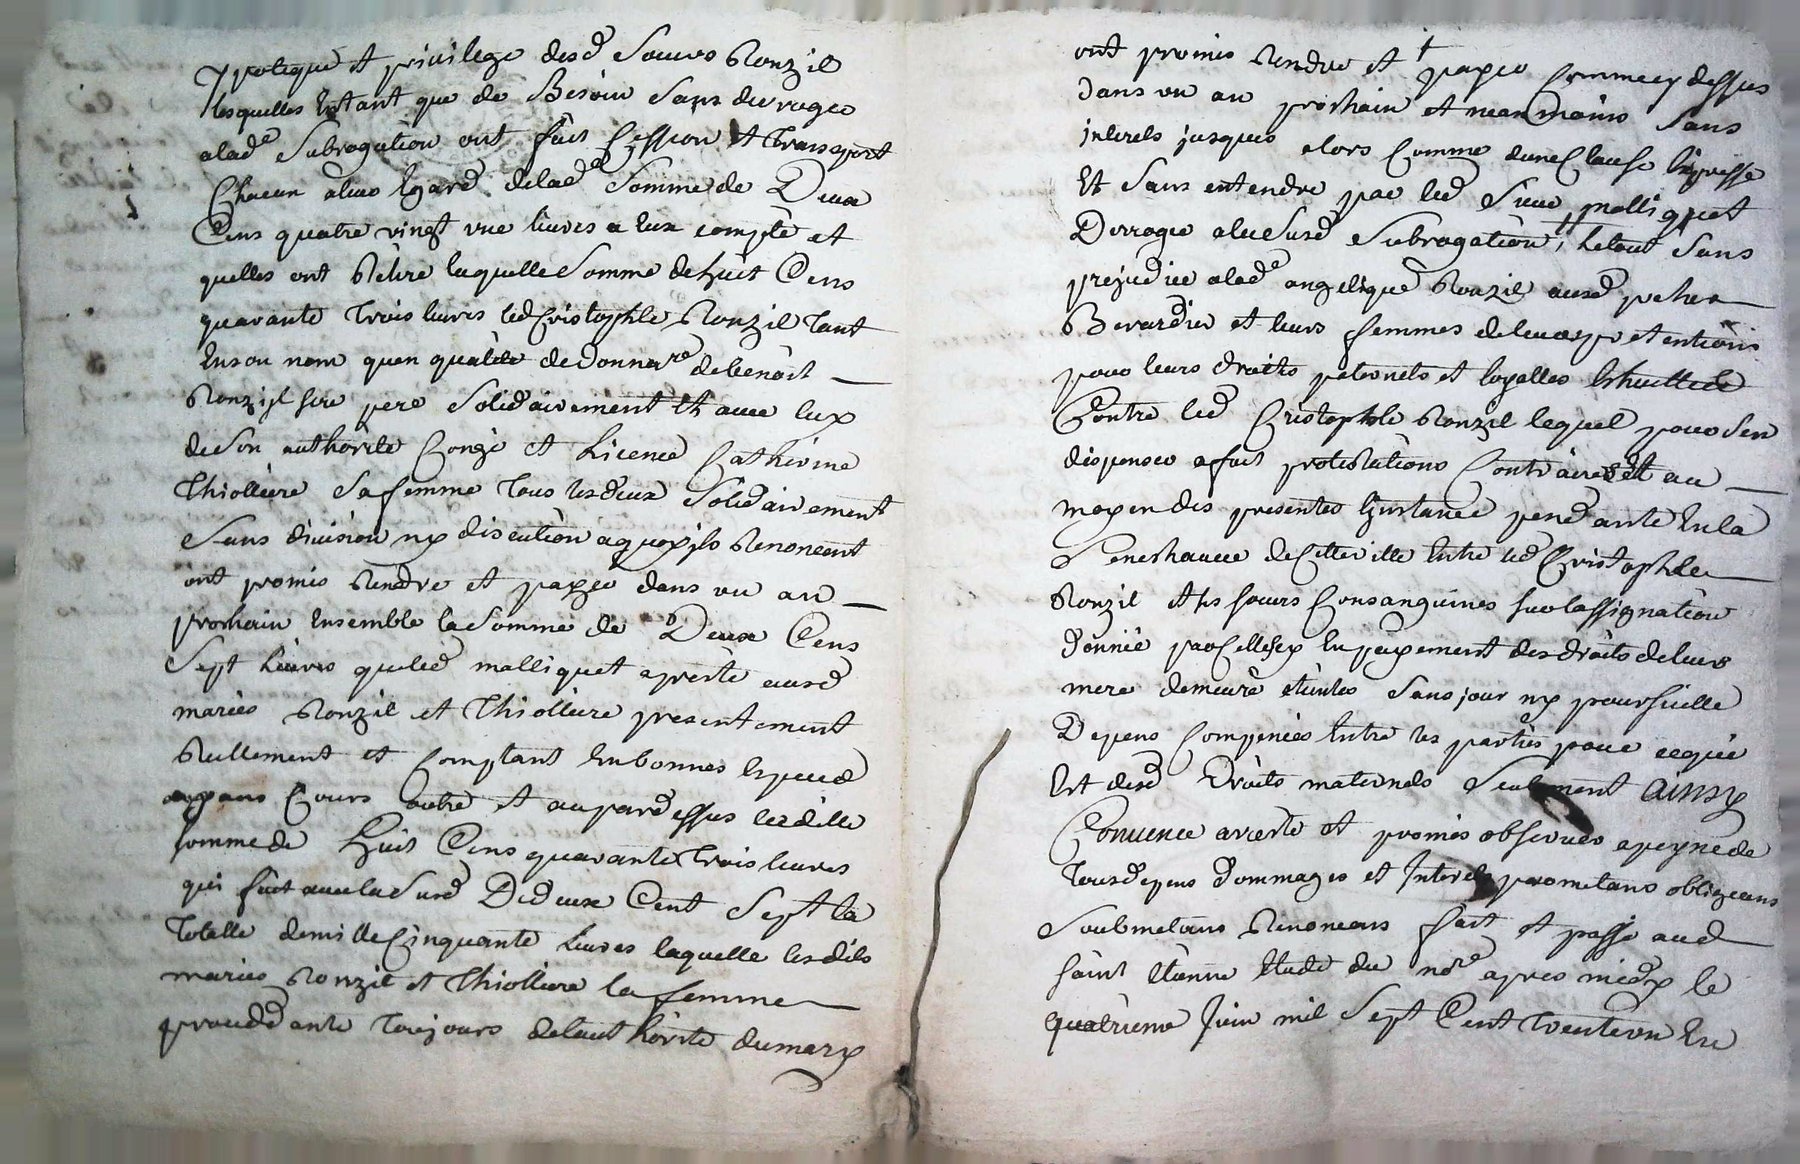 ypoteque et privilege desd. Soeurs Ronzil
lesquelles Entant que de Besoin Sans derroger
alade. Subrogation ont fait Cession et transport
Chacun aleur Egard delade. Somme de Deux
Cens quatre vingt une livres a leur compte et
quelles ont Retiré laquelle Somme de huit Cens
quarante trois livres led Cristophle Ronzil tant
En son nom quen qualité de donnare. de benoist
Ronzil son pere Solidairement Et avec luy
de Son authorité Congé et Licence Catherine
Thiolliere Sa femme tous lesdeux Solidairement
Sans division ny discution aquoy ils Renoncent
ont promis Rendre et payer dans un an
prochain Ensemble la Somme de Deux Cens
Sept Livres queled malliquet apreté ausd
mariés Ronzil et Thiolliere presentement
Reellement et Comptant En bonnes Especes
ayans Cours outre et aupardessus lesditte
somme de Huit Cens quarante Trois livres
qui fait avec la Susd De deux Cent Sept la
Totalle de mille Cinquante livres laquelle lesdits
mariés Ronzil et Thiolliere la femme
proceddante toujours de lauthorité du mary
ont promis Rendre et payer Comme cy dessus
dans un an prochain et neanmoins Sans
interets jusques alors Comme dune Clause Expresse
Et Sans entendre par led Sieur malliquet
Derroger alasusd Subrogation, Le tout Sans
prejudice alade angelique Ronzil ausd
Berardier et leurs femmes de leurs pretentions
pour leurs droits paternels et legalles
Contre led Cristophle Ronzil lequel pour Sen
dispenser a fait protestations Contraires Et au
moyen des presentes Linstance pendante En la
Senechaucé de Cette ville Entre led Cristophle
Ronzil et ses soeurs Consanguines sur lassignation
donnée par Celles cy En payement des droits de leur
mere demeure eteintes Sans jour ny poursuitte
Depens Compensés Entre les parties pour ce qui
Est desd Droits maternels Seulement ainsy
Convenu areté et promis observer a peyne de
Tous depens dommages et Interets promettans obligeans
Soubmetans Renoncans fait et passé aud
Saint Etienne Etude du nore. apres midy le
quatrieme Juin mil Sept Cent Trente un En